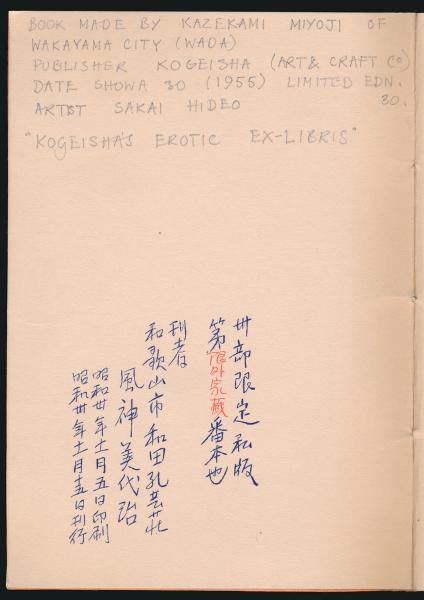 BOOK MADE BY KAZEKAMI MIYOJI OF
WAKAYAMA CITY (WADA)
PUBLISHER KOGEISHA (ART & CRAFT Co)
DATE SHOWA 30 (1955) LIMITED EDN.
ARTIST SAKAI HIDEO 30.
"KOGEISHA'S EROTIC EX-LIBRIS"
卅部限定私版
第限外家蔵番本也
刊者
和歌山市和田孔芸荘
風神美代治
昭和卅年十一月五日印刷
昭和卅年十一月十五日刊行